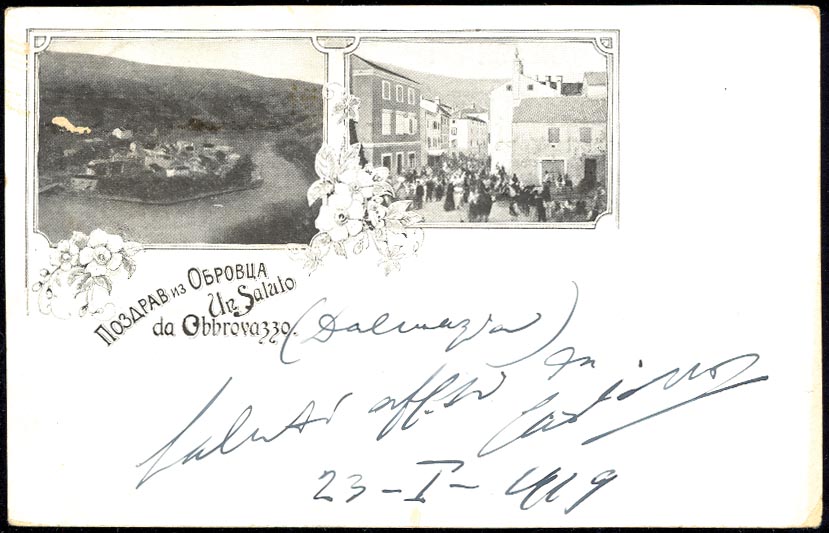 Поздрав из Обровца
Un Saluto
da Obbrovazzo.
(Dalmazia)
Saluti aff.si
23-I-1919